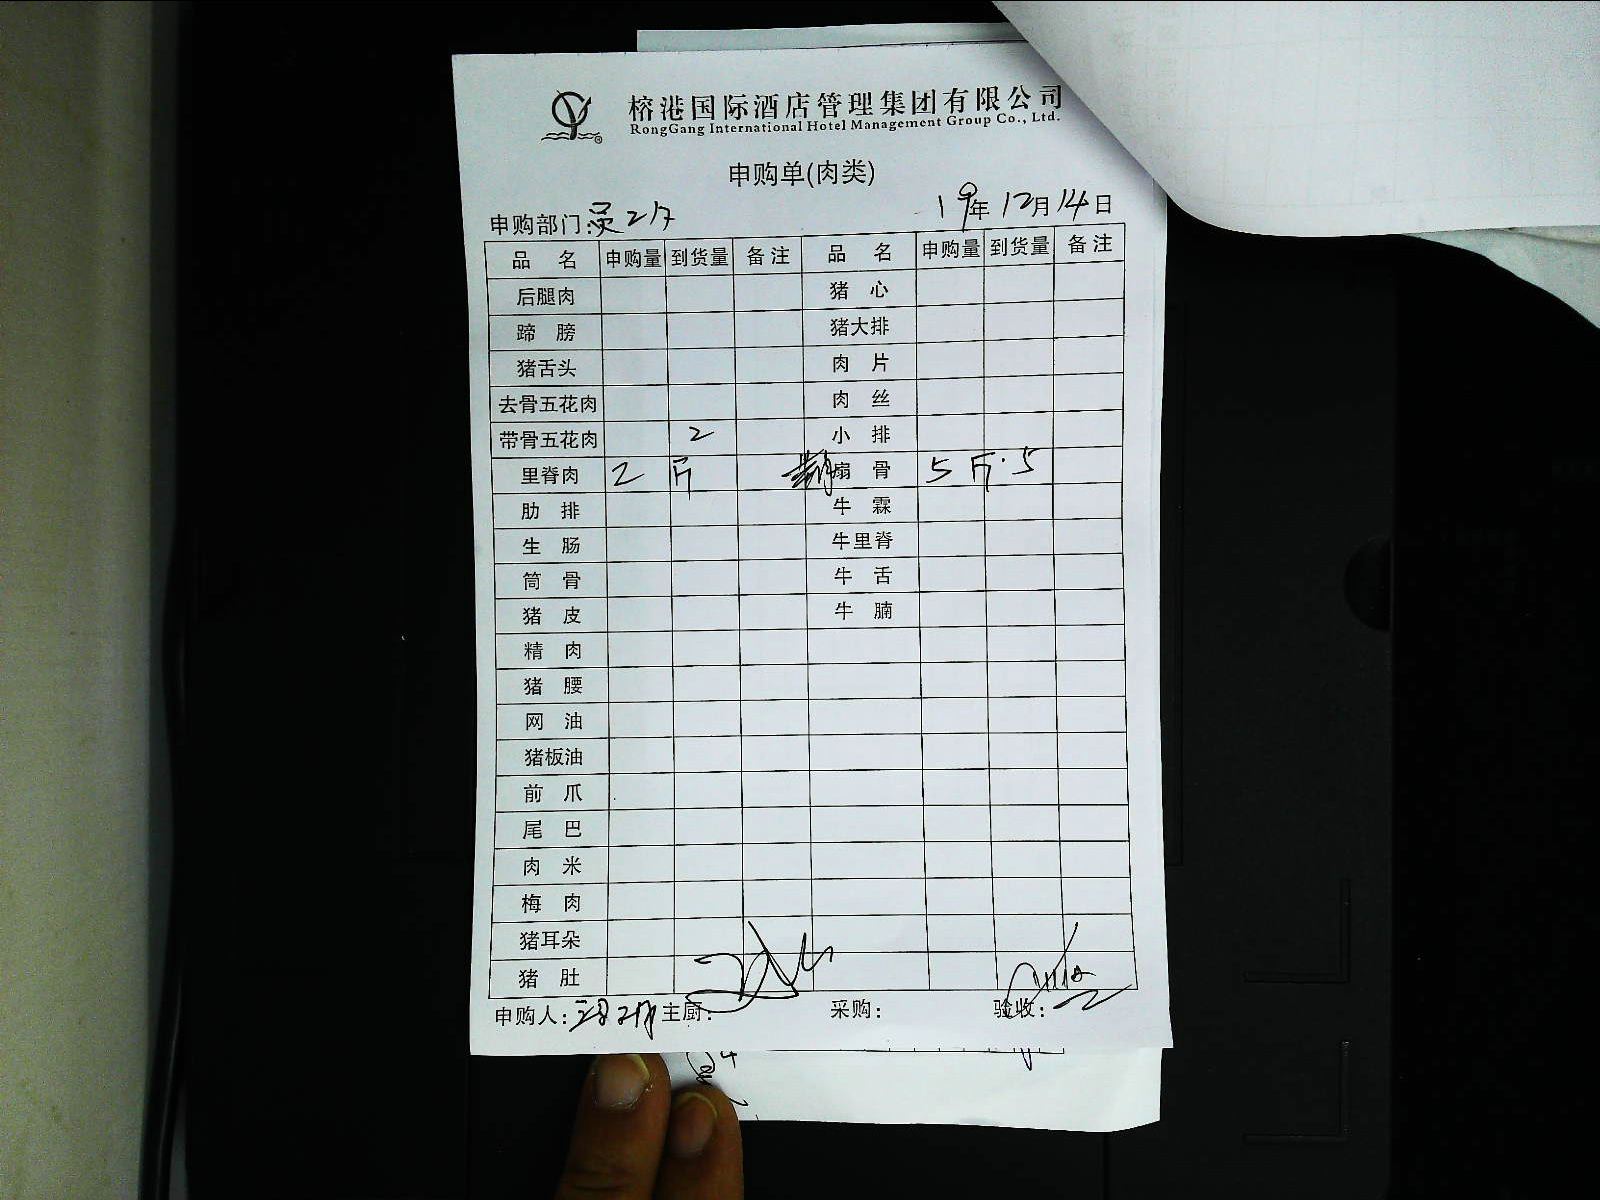 榕港国际酒店管理集团有限公司
RongGang International Hotel Management Group Co., Ltd.
申购单(肉类)
申购部门: 19年12月14日
品名 申购量 到货量 备注 品名 申购量 到货量 备注
后腿肉 猪心
蹄膀 猪大排
猪舌头 肉片
去骨五花肉 肉丝
带骨五花肉 2 小排
里脊肉 2斤 扇骨 5斤·5
肋排 牛霖
生肠 牛里脊
筒骨 牛舌
猪皮 牛腩
精肉
猪腰
网油
猪板油
前爪
尾巴
肉米
梅肉
猪耳朵
猪肚
申购人: 主厨: 采购: 验收: